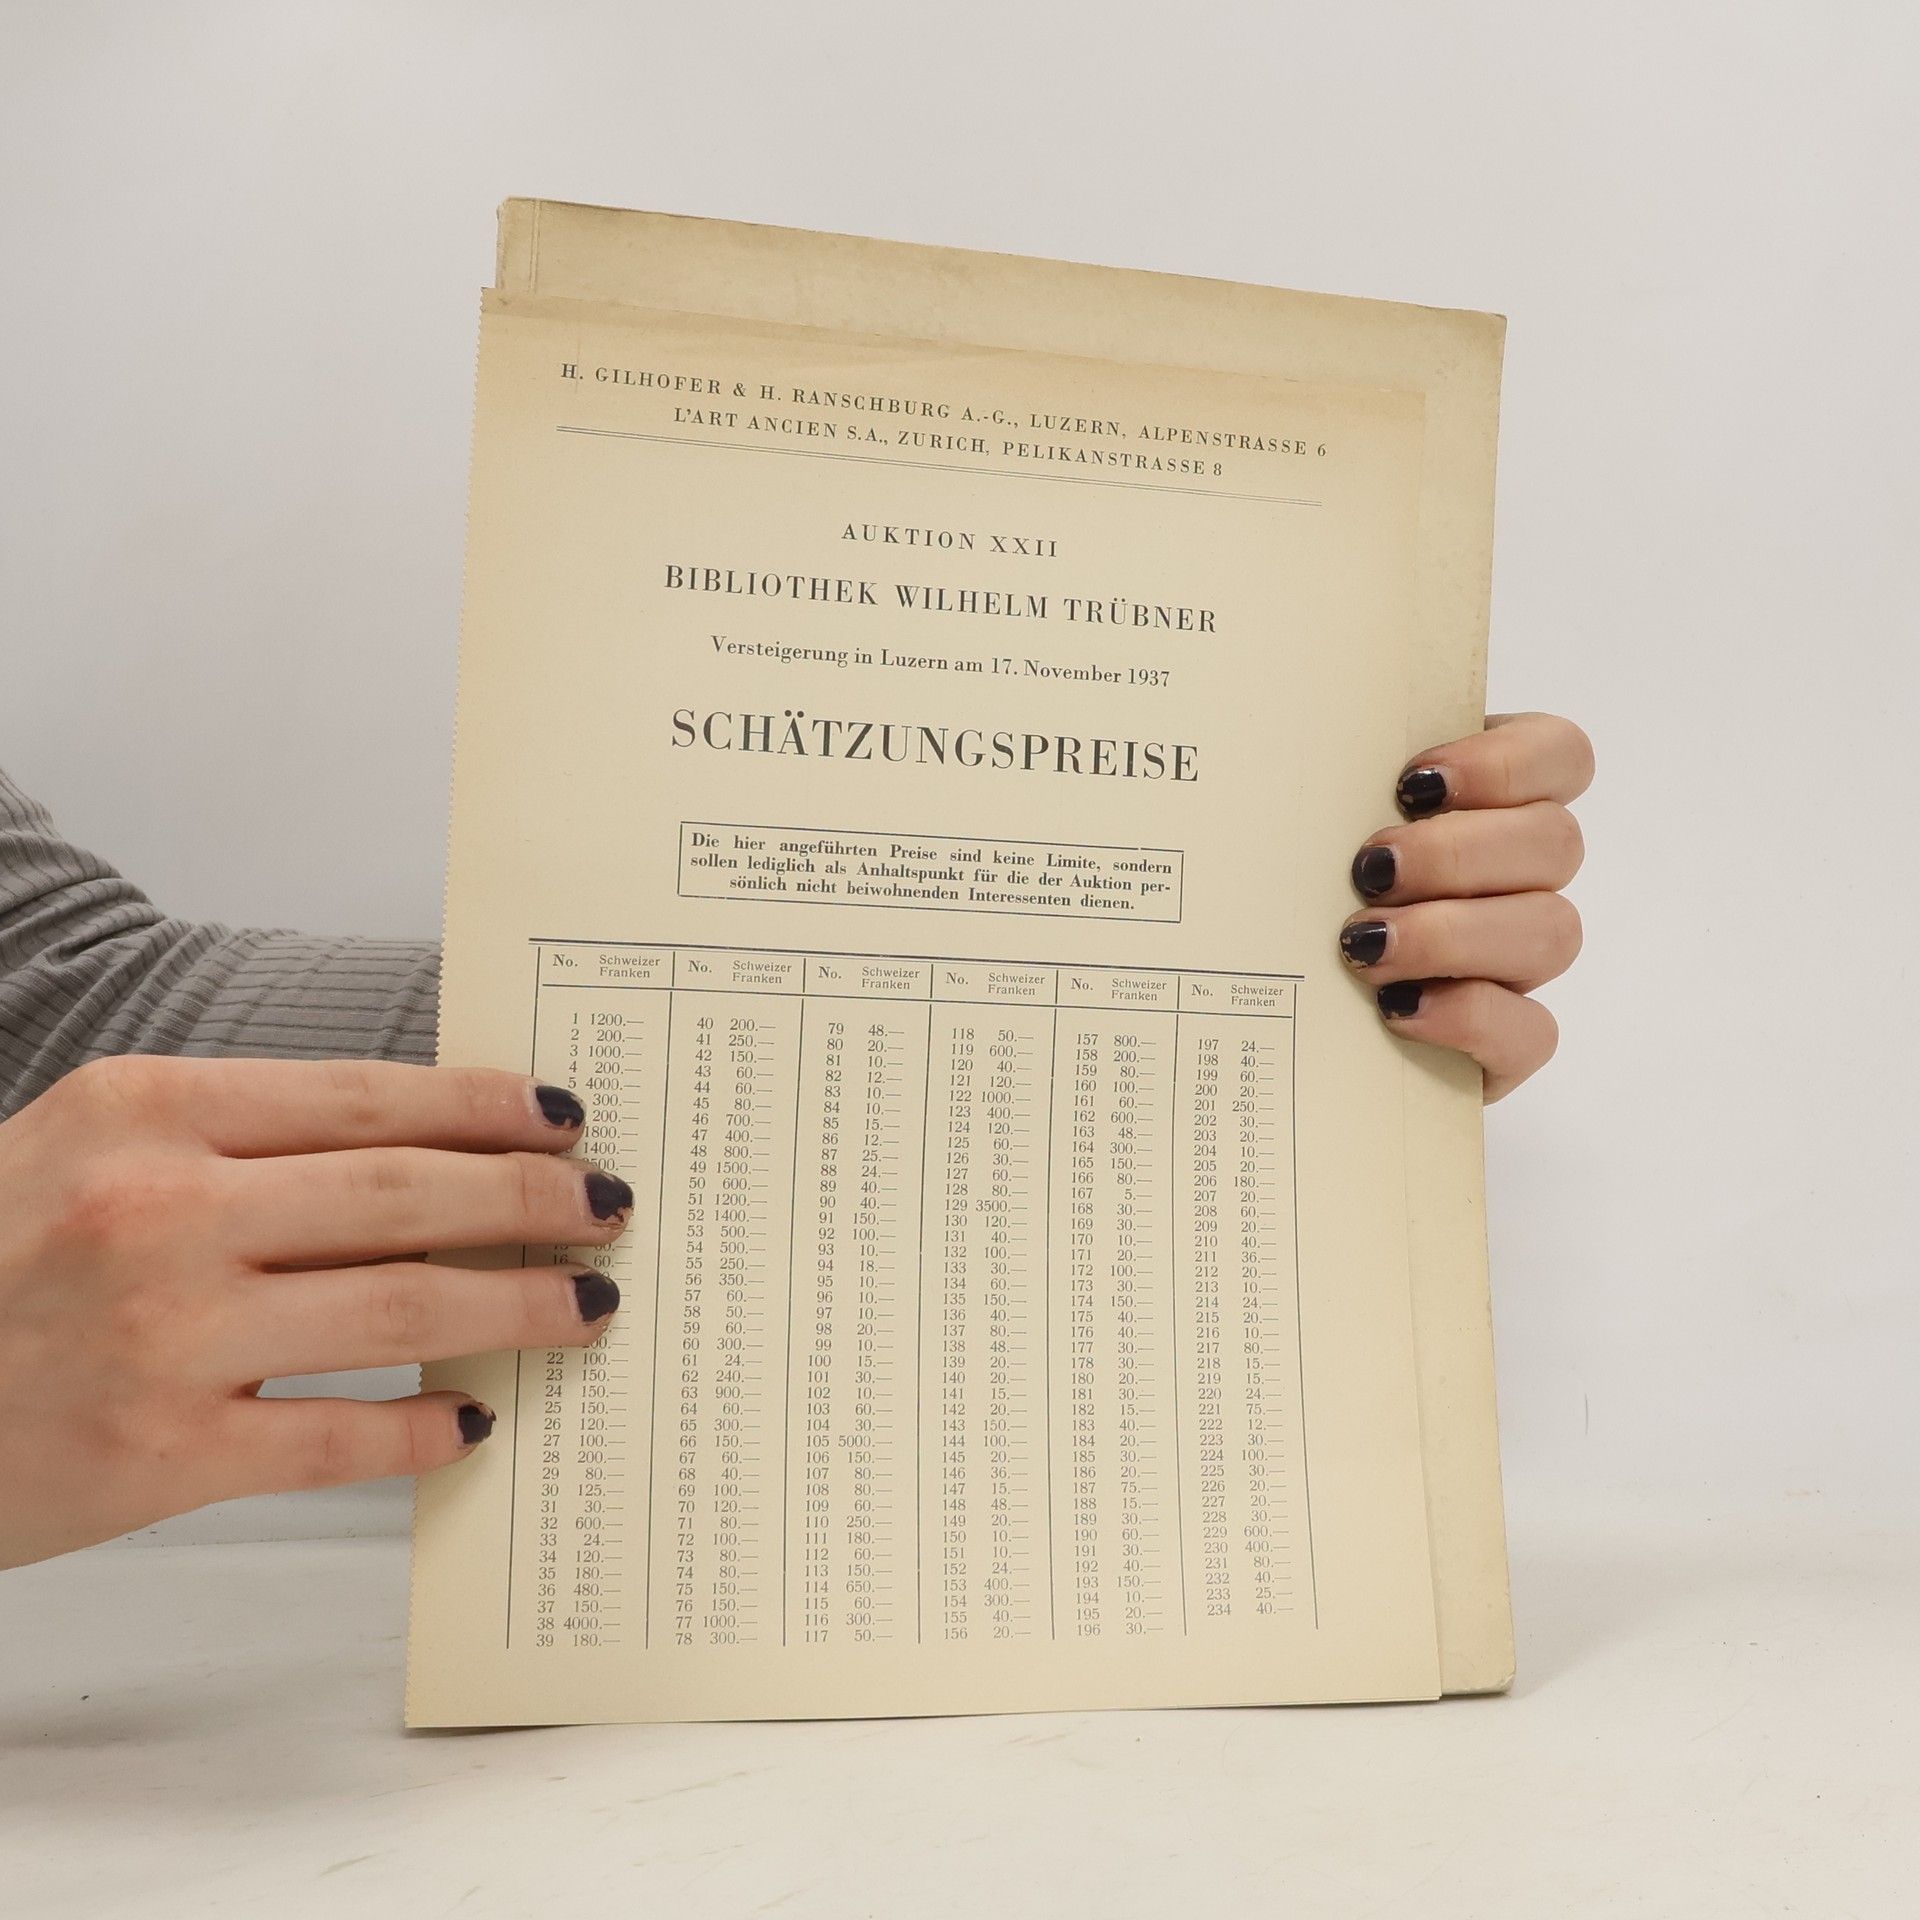 H. GILHOFER & H. RANSCHBURG A.-G., LUZERN, ALPENSTRASSE 6
L'ART ANCIEN S.A., ZURICH, PELIKANSTRASSE 8
AUKTION XXII
BIBLIOTHEK WILHELM TRÜBNER
Versteigerung in Luzern am 17. November 1937
SCHÄTZUNGSPREISE
Die hier angeführten Preise sind keine Limite, sondern
sollen lediglich als Anhaltspunkt für die der Auktion per-
sönlich nicht beiwohnenden Interessenten dienen.
No. Schweizer Franken
1 1200.—
2 200.—
3 1000.—
4 200.—
5 4000.—
300.—
200.—
1800.—
1400.—
16 60.—
22 100.—
23 150.—
24 150.—
25 150.—
26 120.—
27 100.—
28 200.—
29 80.—
30 125.—
31 30.—
32 600.—
33 24.—
34 120.—
35 180.—
36 480.—
37 150.—
38 4000.—
39 180.—
No. Schweizer Franken
40 200.—
41 250.—
42 150.—
43 60.—
44 60.—
45 80.—
46 700.—
47 400.—
48 800.—
49 1500.—
50 600.—
51 1200.—
52 1400.—
53 500.—
54 500.—
55 250.—
56 350.—
57 60.—
58 50.—
59 60.—
60 300.—
61 24.—
62 240.—
63 900.—
64 60.—
65 300.—
66 150.—
67 60.—
68 40.—
69 100.—
70 120.—
71 80.—
72 100.—
73 80.—
74 80.—
75 150.—
76 150.—
77 1000.—
78 300.—
No. Schweizer Franken
79 48.—
80 20.—
81 10.—
82 12.—
83 10.—
84 10.—
85 15.—
86 12.—
87 25.—
88 24.—
89 40.—
90 40.—
91 150.—
92 100.—
93 10.—
94 18.—
95 10.—
96 10.—
97 10.—
98 20.—
99 10.—
100 15.—
101 30.—
102 10.—
103 60.—
104 30.—
105 5000.—
106 150.—
107 80.—
108 80.—
109 60.—
110 250.—
111 180.—
112 60.—
113 150.—
114 650.—
115 60.—
116 300.—
117 50.—
No. Schweizer Franken
118 50.—
119 600.—
120 40.—
121 120.—
122 1000.—
123 400.—
124 120.—
125 60.—
126 30.—
127 60.—
128 80.—
129 3500.—
130 120.—
131 40.—
132 100.—
133 30.—
134 60.—
135 150.—
136 40.—
137 80.—
138 48.—
139 20.—
140 20.—
141 15.—
142 20.—
143 150.—
144 100.—
145 20.—
146 36.—
147 15.—
148 48.—
149 20.—
150 10.—
151 10.—
152 24.—
153 400.—
154 300.—
155 40.—
156 20.—
No. Schweizer Franken
157 800.—
158 200.—
159 80.—
160 100.—
161 60.—
162 600.—
163 48.—
164 300.—
165 150.—
166 80.—
167 5.—
168 30.—
169 30.—
170 10.—
171 20.—
172 100.—
173 30.—
174 150.—
175 40.—
176 40.—
177 30.—
178 30.—
180 20.—
181 30.—
182 15.—
183 40.—
184 20.—
185 30.—
186 20.—
187 75.—
188 15.—
189 30.—
190 60.—
191 30.—
192 40.—
193 150.—
194 10.—
195 20.—
196 30.—
No. Schweizer Franken
197 24.—
198 40.—
199 60.—
200 20.—
201 250.—
202 30.—
203 20.—
204 10.—
205 20.—
206 180.—
207 20.—
208 60.—
209 20.—
210 40.—
211 36.—
212 20.—
213 10.—
214 24.—
215 20.—
216 10.—
217 80.—
218 15.—
219 15.—
220 24.—
221 75.—
222 12.—
223 30.—
224 100.—
225 30.—
226 20.—
227 20.—
228 30.—
229 600.—
230 400.—
231 80.—
232 40.—
233 25.—
234 40.—